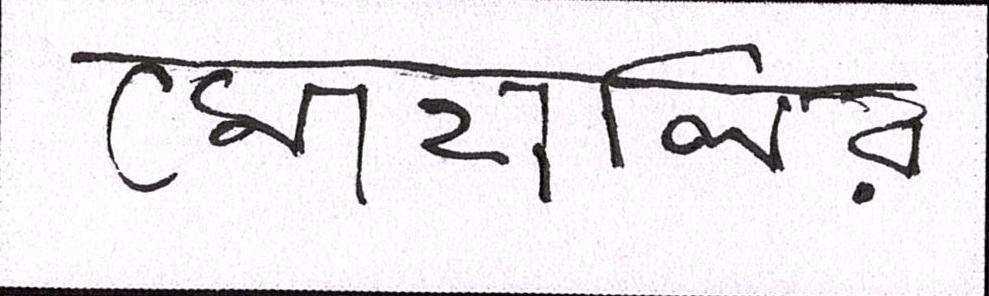 মোহালির